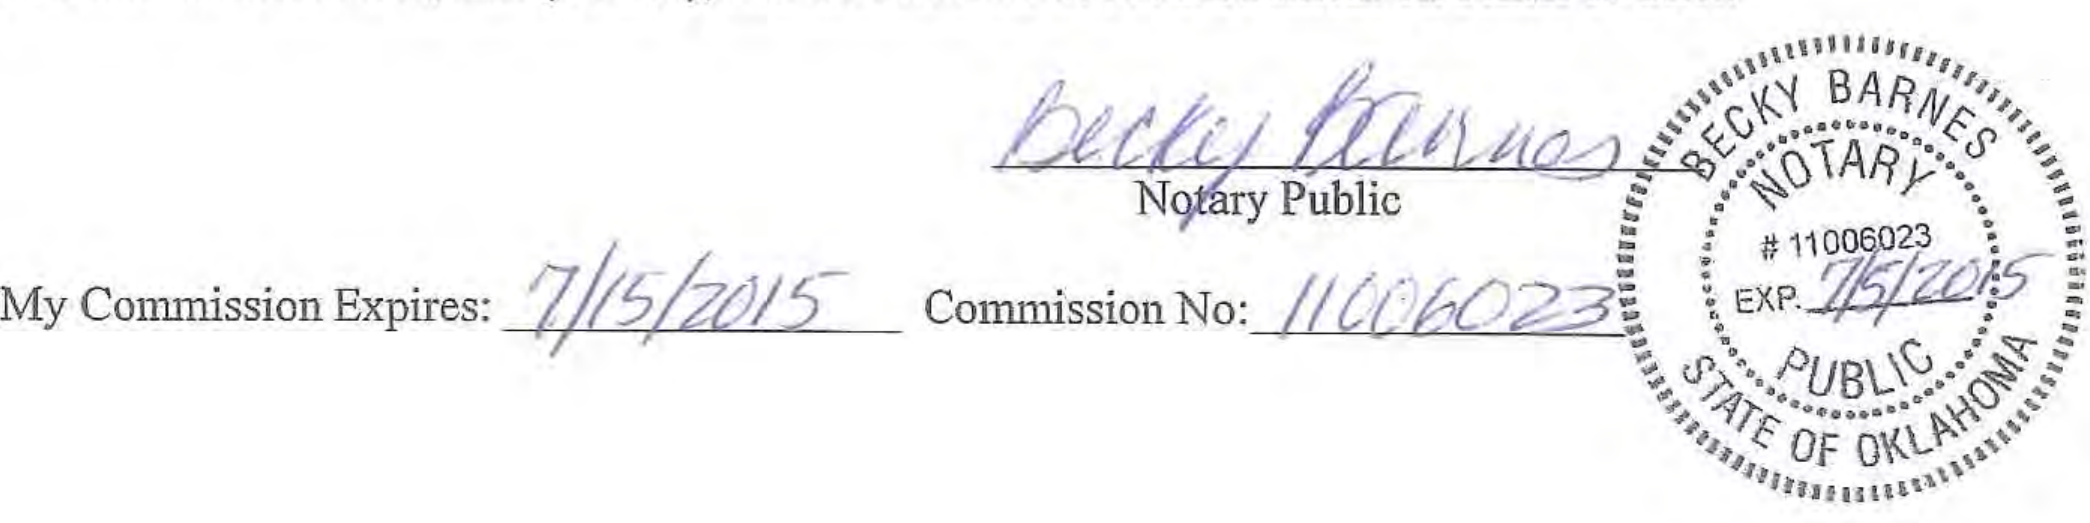 Becky Barnes
Notary Public
My Commission Expires: 7/15/2015 Commission No: 11006023
BECKY BARNES
NOTARY
# 11006023
EXP. 7/5/2015
PUBLIC
STATE OF OKLAHOMA